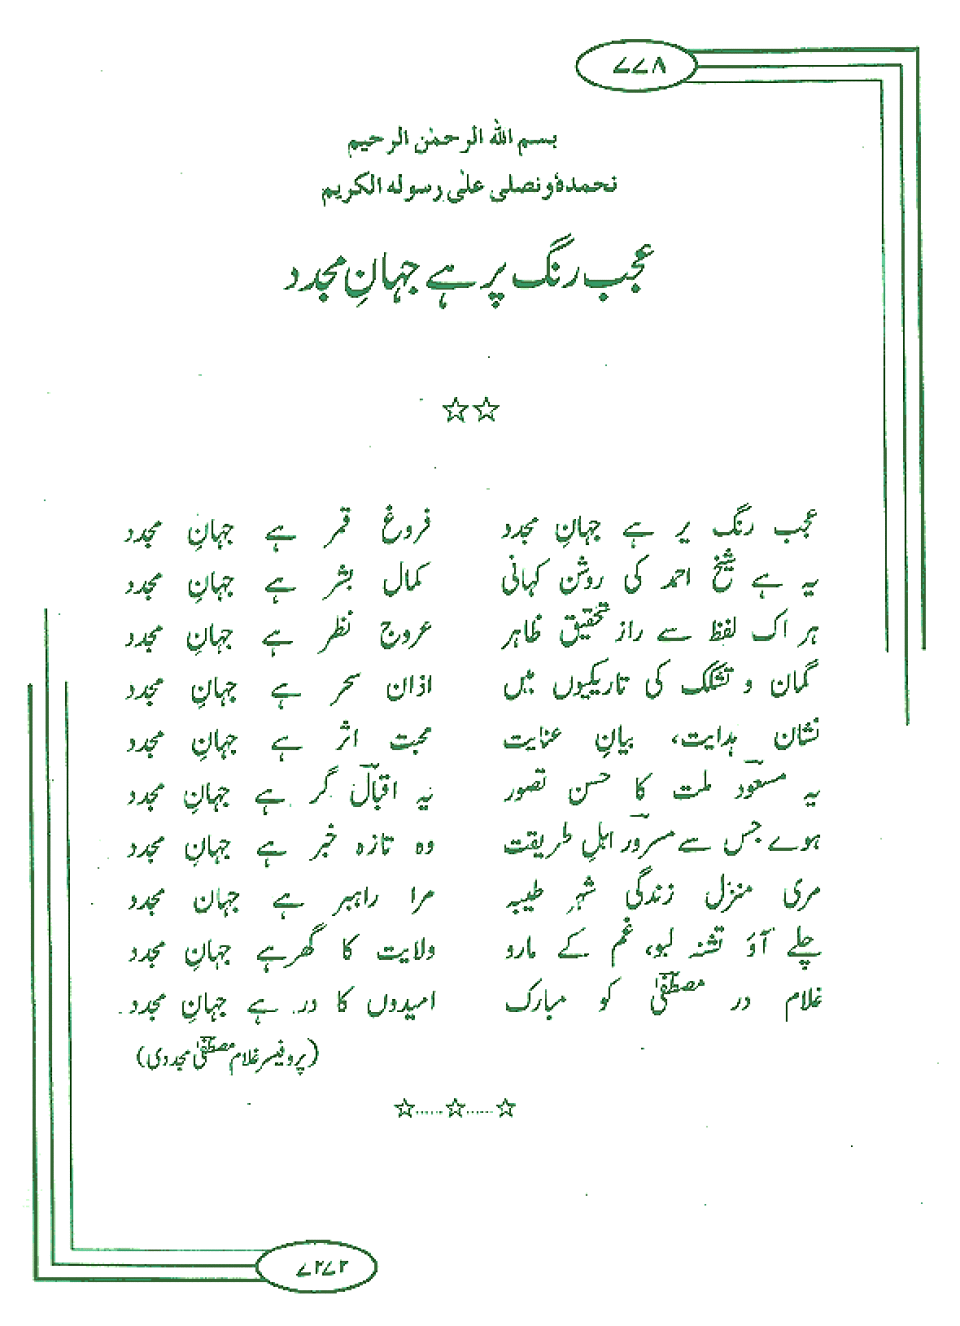 ۷۷۸
بسم اللہ الرحمٰن الرحیم
نحمدہٗ و نصلی علیٰ رسولہ الکریم
عجب رنگ پر ہے جہانِ مجدد
☆☆
عجب رنگ پر ہے جہانِ مجدد فروغ قمر ہے جہانِ مجدد
یہ ہے شیخ احمد کی روشن کہانی کمال بشر ہے جہانِ مجدد
ہر اک لفظ سے راز تحقیق ظاہر عروج نظر ہے جہانِ مجدد
گمان و تشکک کی تاریکیوں میں اذان سحر ہے جہانِ مجدد
نشان ہدایت، بیانِ عنایت محبت اثر ہے جہانِ مجدد
یہ مسعودؔ ملت کا حسن تصور یہ اقبالؔ گر ہے جہانِ مجدد
ہوے جس سے مسرورؔ اہلِ طریقت وہ تازہ خبر ہے جہانِ مجدد
مری منزل زندگی شہر طیبہ مرا راہبر ہے جہان مجدد
چلے آؤ تشنہ لبو، غم کے مارو ولایت کا گھر ہے جہانِ مجدد
غلام در مصطفیٰؔ کو مبارک امیدوں کا در ہے جہانِ مجدد
(پروفیسر غلام مصطفیٰؔ مجددی)
☆......☆......☆
۷۲۷۲